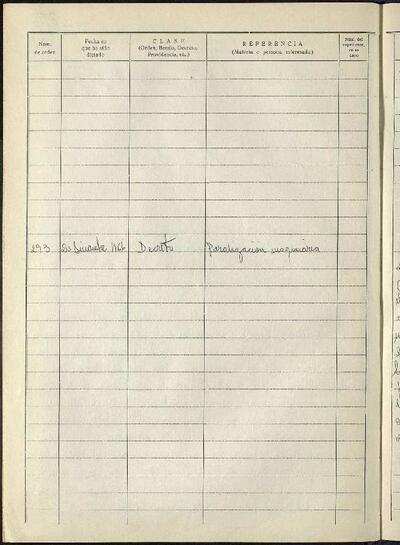 Núm. de orden
Fecha en que ha sido dictado
CLASE
(Orden, Bando, Decreto, Providencia, etc.)
REFERENCIA
(Materia o persona interesada)
Núm. del expediente en su caso
293 20 Diciembre 1966 Decreto Paralización maquinaria